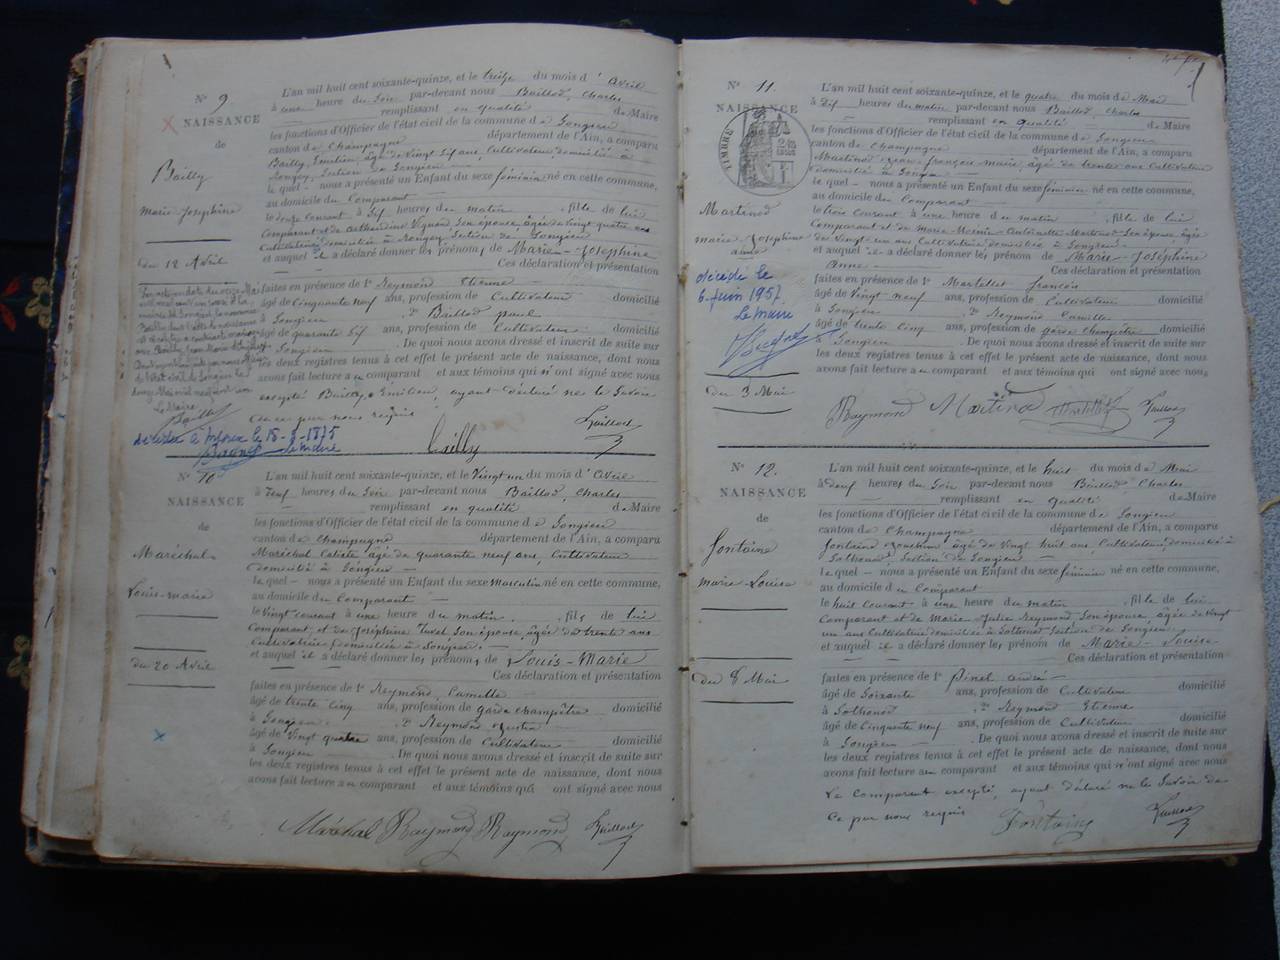 N° 9
NAISSANCE
de
Bailly
Marie Josephine
du 12 Avril
L'an mil huit cent soixante-quinze, et le treize du mois d'Avril
à une heure du Soir par-devant nous Baillod, Charles
remplissant en qualité de Maire
les fonctions d'Officier de l'état civil de la commune de Songieu
canton de Champagne département de l'Ain, a comparu
Bailly, Emilien, âgé de vingt Sept ans, Cultivateur, domicilié à
Section de Songieu
le quel nous a présenté un Enfant du sexe féminin né en cette commune,
au domicile du Comparant
le douze Courant à Six heures du matin, fille de lui
Comparant et de Vignand Son épouse âgée de vingt quatre ans
Cultivatrice domiciliée à Section de Songieu
et auquel il a déclaré donner les prénoms de Marie-Joséphine
Ces déclaration et présentation
faites en présence de 1° Reymond Etienne
âgé de Cinquante neuf ans, profession de Cultivateur domicilié
à Songieu 2° Baillod paul
âgé de quarante Six ans, profession de Cultivateur domicilié
à Songieu. De quoi nous avons dressé et inscrit de suite sur
les deux registres tenus à cet effet le présent acte de naissance, dont nous
avons fait lecture au comparant et aux témoins qui ont signé avec nous
excepté Bailly, Emilien, ayant déclaré ne le Savoir
de ce par nous requis
Le Maire
décédée à le 18-8-1875
le maire
Bailly Baillod
N° 10
NAISSANCE
de
Maréchal
Louis-Marie
du 20 Avril
L'an mil huit cent soixante-quinze, et le Vingt un du mois d'Avril
à neuf heures du Soir par-devant nous Baillod, Charles
remplissant en qualité de Maire
les fonctions d'Officier de l'état civil de la commune de Songieu
canton de Champagne département de l'Ain, a comparu
Maréchal Calixte âgé de quarante neuf ans, Cultivateur
domicilié à Songieu
le quel nous a présenté un Enfant du sexe masculin né en cette commune,
au domicile du Comparant
le Vingt courant à une heure du matin, fils de lui
Comparant, et de Joséphine Son épouse, âgée de trente ans
Cultivatrice, domiciliée à Songieu
et auquel il a déclaré donner les prénoms de Louis-Marie
Ces déclaration et présentation
faites en présence de 1° Reymond, Camille
âgé de trente Cinq ans, profession de garde champêtre domicilié
à Songieu. 2° Reymond
âgé de Vingt quatre ans, profession de Cultivateur domicilié
à Songieu. De quoi nous avons dressé et inscrit de suite sur
les deux registres tenus à cet effet le présent acte de naissance, dont nous
avons fait lecture au comparant et aux témoins qui ont signé avec nous
Maréchal Raymond Raymond Baillod
N° 11.
NAISSANCE
TIMBRE
Martinod
marie Josephine
anne
décédée le
6 juin 1957.
Le Maire
du 3 Mai
L'an mil huit cent soixante-quinze, et le quatre du mois de Mai
à Dix heures du matin par-devant nous Baillod, Charles
remplissant en qualité de Maire
les fonctions d'Officier de l'état civil de la commune de Songieu
canton de Champagne département de l'Ain, a comparu
Martinod Jean françois marie, âgé de trente ans Cultivateur
domicilié à Songieu
le quel nous a présenté un Enfant du sexe féminin né en cette commune,
au domicile du Comparant
le trois Courant à une heure du matin, fille de lui
Comparant et de Marie Antoinette Martinod Son épouse, âgée
de Vingt un ans Cultivatrice domiciliée à Songieu
et auquel il a déclaré donner les prénom de Marie-Joséphine
Anne Ces déclaration et présentation
faites en présence de 1° Martellet françois
âgé de Vingt neuf ans, profession de Cultivateur domicilié
à Songieu. 2° Reymond Camille
âgé de trente Cinq ans, profession de garde champêtre domicilié
à Songieu. De quoi nous avons dressé et inscrit de suite sur
les deux registres tenus à cet effet le présent acte de naissance, dont nous
avons fait lecture au comparant et aux témoins qui ont signé avec nous.
Raymond Martinod Baillod
N° 12.
NAISSANCE
de
fontaine
marie-Louise
du 8 Mai
L'an mil huit cent soixante-quinze, et le huit du mois de Mai
à neuf heures du Soir par-devant nous Baillod, Charles
remplissant en qualité de Maire
les fonctions d'Officier de l'état civil de la commune de Songieu
canton de Champagne département de l'Ain, a comparu
fontaine Joachim âgé de Vingt huit ans, Cultivateur, domicilié à
Sothonod, Section de Songieu
le quel nous a présenté un Enfant du sexe féminin né en cette commune,
au domicile du Comparant
le huit Courant à une heure du matin, fille de lui
Comparant et de Marie-Julie Reymond Son épouse, âgée de Vingt
un ans Cultivatrice domiciliée à Sothonod Section de Songieu
et auquel il a déclaré donner les prénom de Marie-Louise
Ces déclaration et présentation
faites en présence de 1° Pinel andré
âgé de Soixante ans, profession de Cultivateur domicilié
à Sothonod 2° Reymond Etienne
âgé de Cinquante neuf ans, profession de Cultivateur domicilié
à Songieu. De quoi nous avons dressé et inscrit de suite sur
les deux registres tenus à cet effet le présent acte de naissance, dont nous
avons fait lecture au comparant et aux témoins qui n'ont signé avec nous,
Le Comparant excepté, ayant déclaré ne le Savoir de
Ce par nous requis Fontaine Baillod